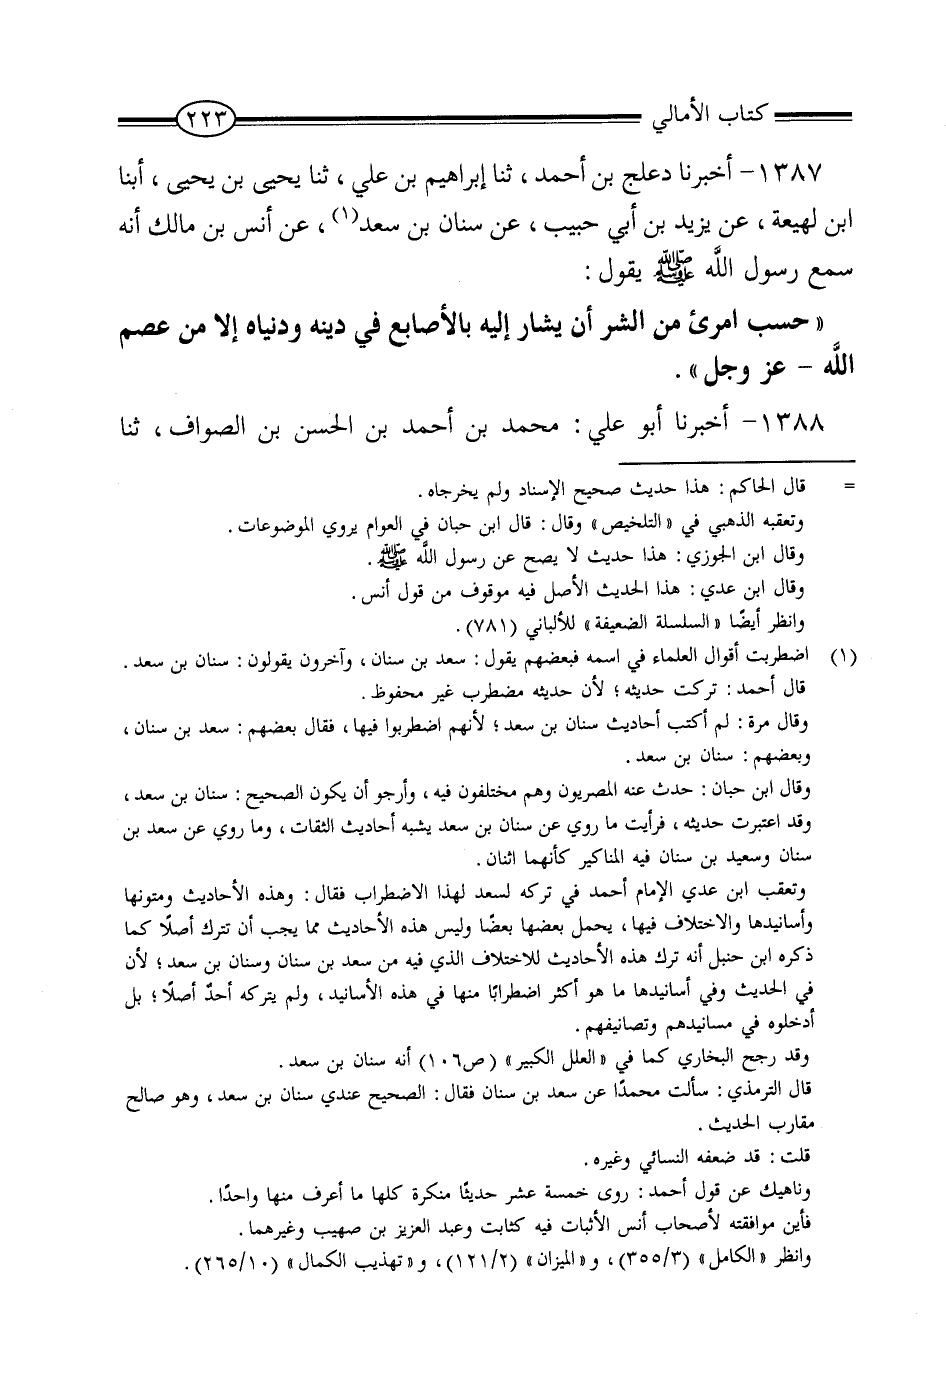 كتاب الأمالي ٢٢٣
١٣٨٧- أخبرنا دعلج بن أحمد ، ثنا إبراهيم بن علي ، ثنا يحيى بن يحيى ، أبنا
ابن لهيعة ، عن يزيد بن أبي حبيب ، عن سنان بن سعد(١) ، عن أنس بن مالك أنه
سمع رسول اللَّه ﷺ يقول :
« حسب امرئ من الشر أن يشار إليه بالأصابع في دينه ودنياه إلا من عصم
اللَّه - عز وجل » .
١٣٨٨- أخبرنا أبو علي : محمد بن أحمد بن الحسن بن الصواف ، ثنا
= قال الحاكم : هذا حديث صحيح الإسناد ولم يخرجاه .
وتعقبه الذهبي في « التلخيص » وقال : قال ابن حبان في العوام يروي الموضوعات .
وقال ابن الجوزي : هذا حديث لا يصح عن رسول اللَّه ﷺ .
وقال ابن عدي : هذا الحديث الأصل فيه موقوف من قول أنس .
وانظر أيضًا « السلسلة الضعيفة » للألباني (٧٨١) .
(١) اضطربت أقوال العلماء في اسمه فبعضهم يقول : سعد بن سنان ، وآخرون يقولون : سنان بن سعد .
قال أحمد : تركت حديثه ؛ لأن حديثه مضطرب غير محفوظ .
وقال مرة : لم أكتب أحاديث سنان بن سعد ؛ لأنهم اضطربوا فيها ، فقال بعضهم : سعد بن سنان ،
وبعضهم : سنان بن سعد .
وقال ابن حبان : حدث عنه المصريون وهم مختلفون فيه ، وأرجو أن يكون الصحيح : سنان بن سعد ،
وقد اعتبرت حديثه ، فرأيت ما روي عن سنان بن سعد يشبه أحاديث الثقات ، وما روي عن سعد بن
سنان وسعيد بن سنان فيه المناكير كأنهما اثنان .
وتعقب ابن عدي الإمام أحمد في تركه لسعد لهذا الاضطراب فقال : وهذه الأحاديث ومتونها
وأسانيدها والاختلاف فيها ، يحمل بعضها بعضًا وليس هذه الأحاديث مما يجب أن تترك أصلًا كما
ذكره ابن حنبل أنه ترك هذه الأحاديث للاختلاف الذي فيه من سعد بن سنان وسنان بن سعد ؛ لأن
في الحديث وفي أسانيدها ما هو أكثر اضطرابًا منها في هذه الأسانيد ، ولم يتركه أحدٌ أصلًا ؛ بل
أدخلوه في مسانيدهم وتصانيفهم .
وقد رجح البخاري كما في « العلل الكبير » (ص١٠٦) أنه سنان بن سعد .
قال الترمذي : سألت محمدًا عن سعد بن سنان فقال : الصحيح عندي سنان بن سعد ، وهو صالح
مقارب الحديث .
قلت : قد ضعفه النسائي وغيره .
وناهيك عن قول أحمد : روى خمسة عشر حديثًا منكرة كلها ما أعرف منها واحدًا .
فأين موافقته لأصحاب أنس الأثبات فيه كثابت وعبد العزيز بن صهيب وغيرهما .
وانظر « الكامل » (٣٥٥/٣) ، و« الميزان » (١٢١/٢) ، و« تهذيب الكمال » (٢٦٥/١٠) .